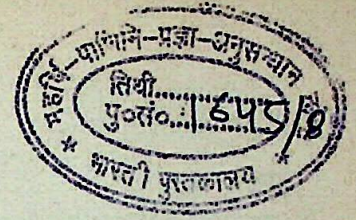 महर्षि-पाणिनि-प्रज्ञा-अनुसन्धान
तिथी..............
पु०सं०..1645/8
* भारती पुस्तकालय *